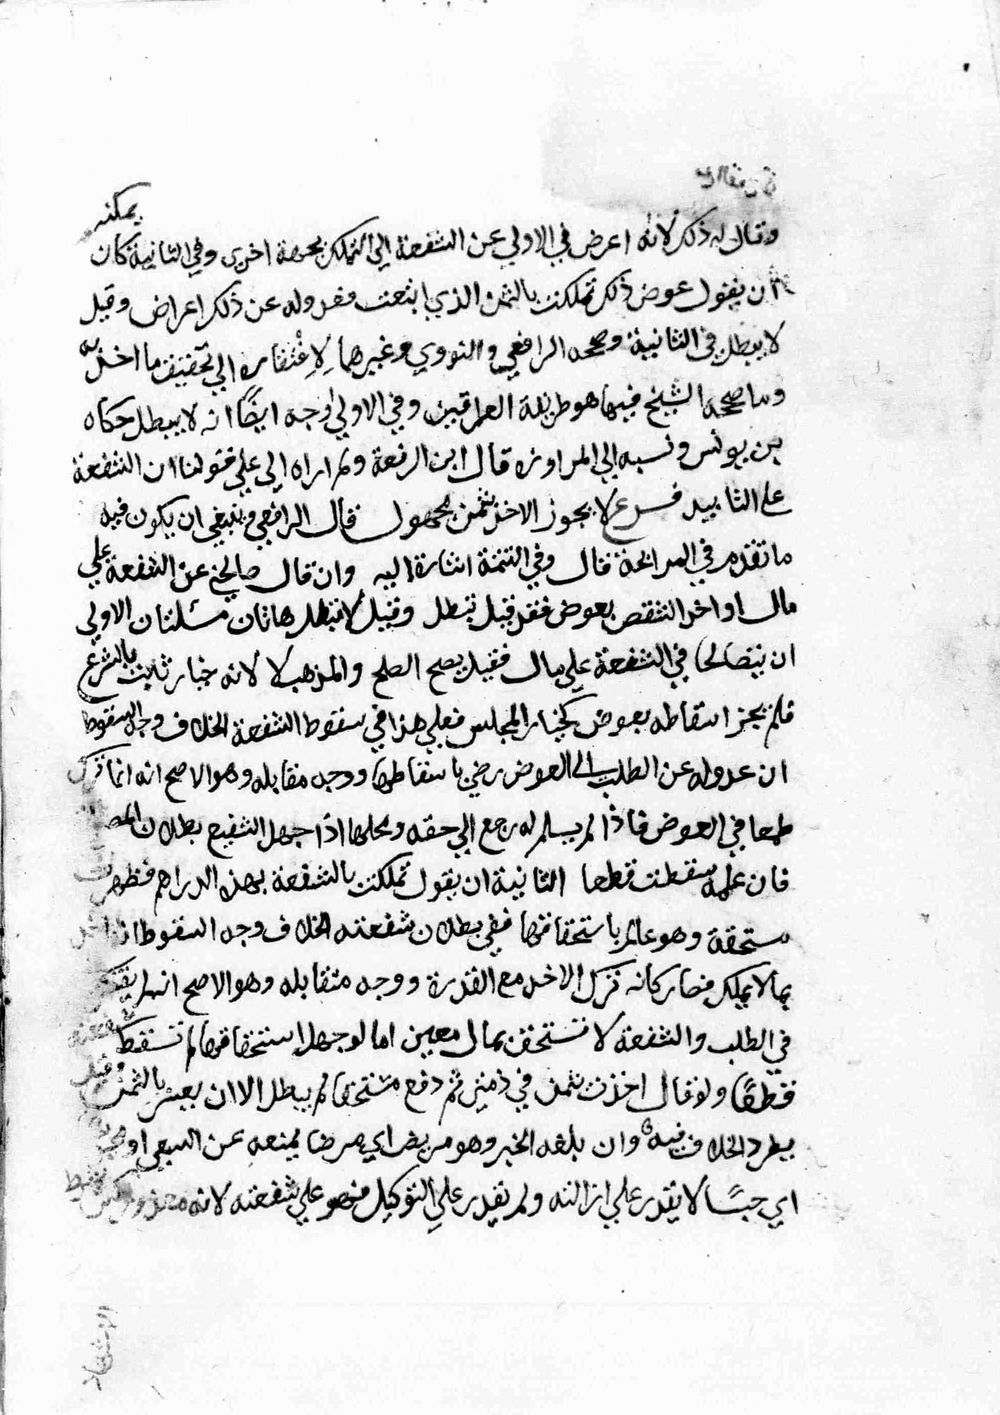 يمكنه
وقال له ذلك لانه اعرض في الاولي عن الشفعة الي التملك بجهة اخرى وفي الثانية كان
ان يقول عوض ذلك تملكت بالثمن الذي ابتعت فعدوله عن ذلك اعراض وقيل
لا يبطل في الثانية وصححه الرافعي والنووي وغيرهما لافتقاره الي تحقيق ما اخذ به
وما صححه الشيخ فيها هو طريقة العراقيين وفي الاولي وجه ايضًا انه لا يبطل حكاه
بن يونس ونسبه الي المراوزه قال ابن الرفعة ولم اراه الي علي قولنا ان الشفعة
على التابيد فرع لا يجوز الاخذ بثمن مجهول قال الرافعي وينبغي ان يكون فيه
ما تقدم في المرابحة قال وفي التتمة اشارة اليه وان قال صالحني عن الشفعة علي
مال او اخذ الشقص بعوض فقد قيل تبطل وقيل لا تبطل هاتان مسئلتان الاولى
ان يتصالحا في الشفعة علي مال فقيل يصح الصلح والمذهب لا لانه خيار ثابت بالشرع
فلم يجز اسقاطه بعوض كخيار المجلس فعلي هذا في سقوط الشفعة الخلاف وجه السقوط
ان عدوله عن الطلب الى العوض رضي باسقاطها ووجه مقابله وهو الاصح انه انما ترك
طمعا في العوض فاذا لم يسلم له رجع الي حقه ومحلها اذا جهل الشفيع بطلان
فان علمه سقطت قطعا الثانية ان يقول تملكت بالشفعة بهذه الدراهم فظهرت
مستحقة وهو عالم باستحقاقها ففي بطلان شفعته الخلاف وجه السقوط انه اخذ
بما لا يملك فصار كانه ترك الاخذ مع القدرة ووجه مقابله وهو الاصح انه لم يقصر
في الطلب والشفعة لا تستحق بمال معين اما لو جهل استحقاقها لم تسقط
قطعًا ولو قال اخذت بثمن في ذمتي ثم دفع مستحقا لم يبطل الا ان يعين بالثمن وقيل
يطرد الخلاف فيه وان بلغه الخبر وهو مريض اي مرضا يمنعه عن السعي او
اي حبسًا لا يقدر علي ازالته ولم يقدر علي التوكيل فهو علي شفعته لانه معذور
الاشهاد